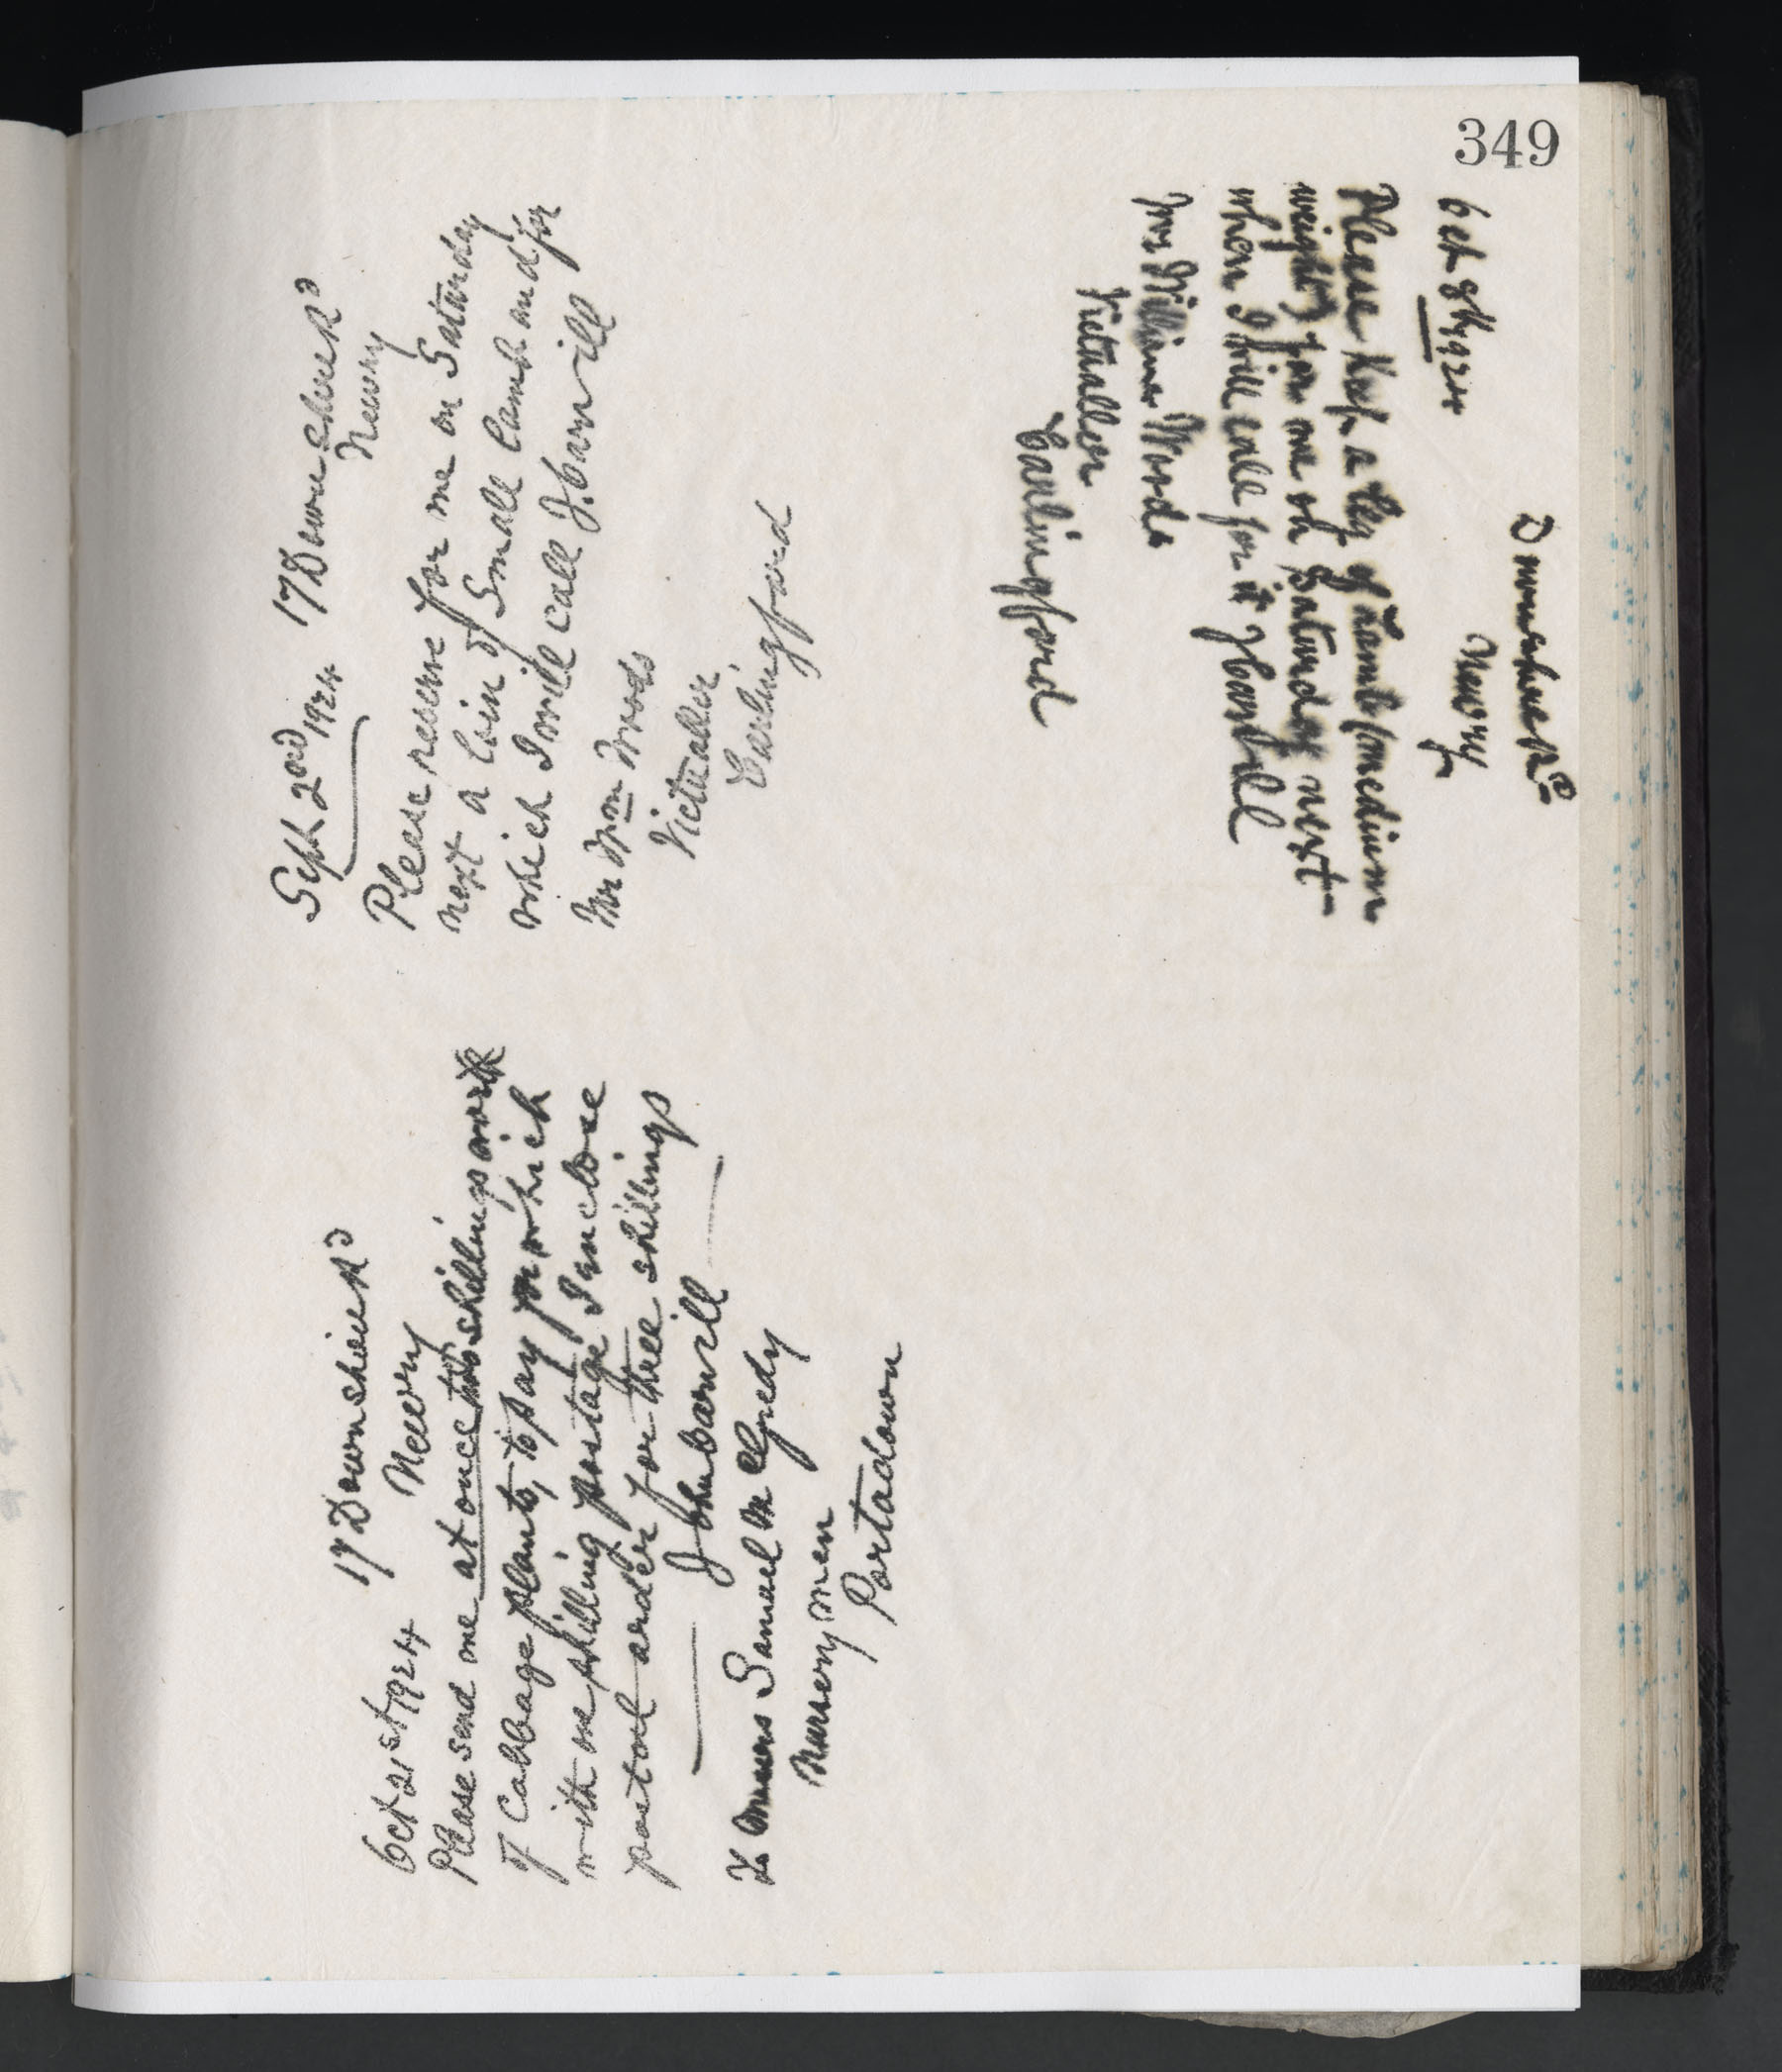 349
Sept 2nd 1924 17 Downshire Rd
Newry
Please reserve for me on Saturday
next a Loin of Small Lamb and for
which I will call J. Carvill
Mr Wm Woods
Victualler
Carlingford
Oct 21st 1924 17 Downshire Rd
Newry
Please send me at once two shillings worth
of Cabbage plants, to pay for which
with one shilling postage I enclose
postal order for three shillings
John Carvill
To Messrs Samuel McGredy
Nurserymen
Portadown
Downshire Rd
Newry
Oct 8th 1924
Please Keep a Leg of Lamb (medium
weight) for me on Saturday next
when I will call for it J Carvill
William Woods
Victualler
Carlingford